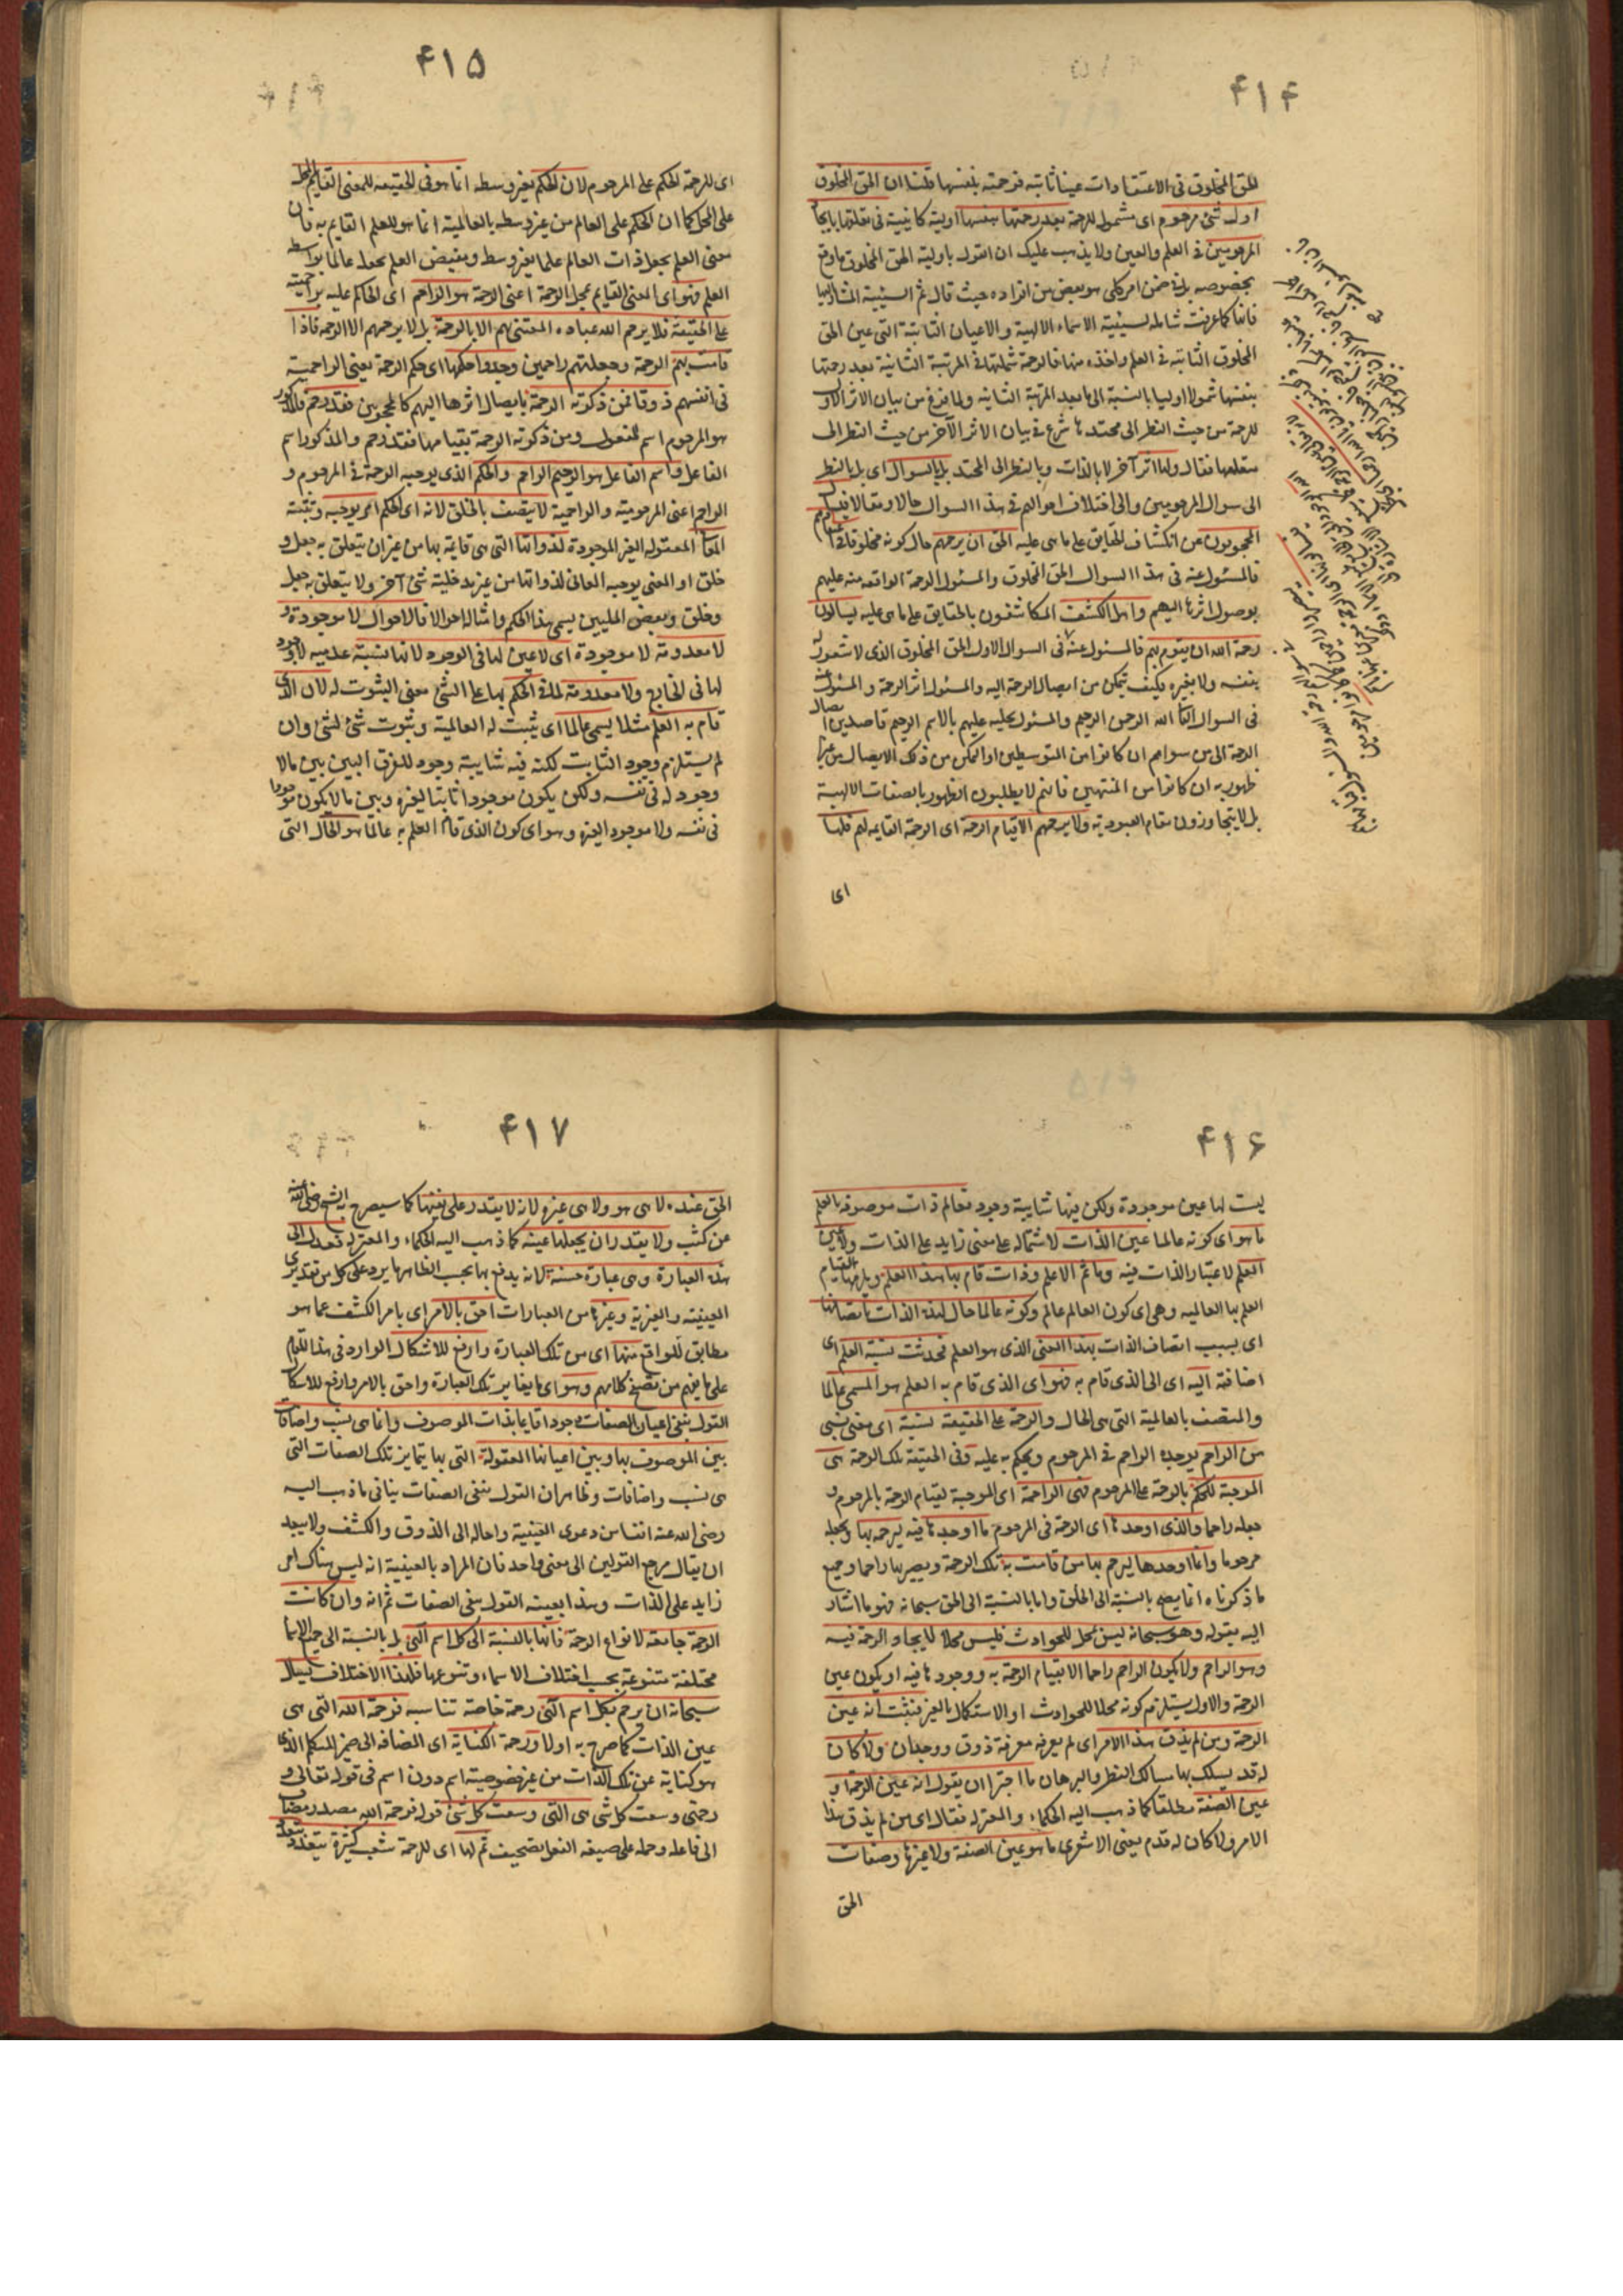 ۴۱۴
الحق المخلوق فى الاعتقادات عينا ثابتة فرحمته بنفسها قلنا ان الحق المخلوق
اول شئ مرحوم اى مشمول للرحمة بعد رحمتها بنفسها اولية كاينة فى تعلقها بايجاد
المرحومين فى العلم والعين ولا يذهب عليك ان القول باولية الحق المخلوق ما وقع
بخصوصه بل فى ضمن امر كلى هو بعض من افراده حيث قال ثم الشيئية المشار اليها
فانها كما عرفت شاملة لشيئية الاسماء الالهية والاعيان الثابتة التى عين الحق
المخلوق الثابتة فى العلم واحدة منها فالرحمة شملتها فى المرتبة الثانية بعد رحمتها
بنفسها شمولا اوليا بالنسبة الى ما بعد المرتبة الثانية ولما فرغ من بيان الاثر الاول
للرحمة من حيث النظر الى محتدها شرع فى بيان الاثر الآخر من حيث النظر الى
متعلقها فقال ولها اثر آخر لا بالذات وبالنظر الى المحتد بل بالسوال اى بل بالنظر
الى سوال المرحومين والى اختلاف احوالهم فى هذا السوال حالا ومقالا فيسال
المحجوبون عن انكشاف الحقايق على ما هى عليه الحق ان يرحمهم حال كونه مخلوقا فى اعتقادهم
فالمسئول عنه فى هذا السوال الحق المخلوق والمسئول الرحمة الواقعة منه عليهم
بوصول اثرها اليهم واهل الكشف المكاشفون بالحقايق على ما هى عليه يسالون
رحمة الله ان يقوم بهم فالمسئول عنه فى السوال الاول الحق المخلوق الذى لا شعور له
بنفسه ولا بغيره فكيف يتمكن من ايصال الرحمة اليه والمسئول اثر الرحمة والمسئول عنه
فى السوال الثانى الله الرحمن الرحيم والمسئول تجليه عليهم بالاسم الرحيم قاصدين ايصال
الرحمة الى من سواهم ان كانوا من المتوسطين او التمكن من ذلك الايصال من غير
ظهور به ان كانوا من المنتهين فانهم لا يطلبون الظهور بالصفات الالهية
بل لا يتجاوزون مقام العبودية ولا يرحمهم الا قيام الرحمة اى الرحمة القايمة بهم فلها
اى
۴۱۵
اى للرحمة الحكم على المرحوم لان الحكم بغير وسطه انما هو فى الحقيقة للمعنى القايم بالمحل
على المحل كما ان الحكم على العالم من غير وسطه بالعالمية انما هو للعلم القايم به فان
معنى العلم يجعل ذات العالم عالما بغير وسط ومفيض العلم يجعله عالما بواسطة
العلم فهو اى المعنى القايم بمحل الرحمة اعنى الرحمة هو الراحم اى الحاكم عليه براحميته
على الحقيقة فلا يرحم الله عباده المعتنى بهم الا بالرحمة بل لا يرحمهم الا الرحمة فاذا
قامت بهم الرحمة وجعلتهم راحمين وجدوا حكمها اى حكم الرحمة يعنى الراحمية
فى انفسهم ذوقا فمن ذكرته الرحمة بايصال اثرها اليهم كالمحجوبين فقد رحم فالمذكور
هو المرحوم اسم المفعول ومن ذكرته الرحمة بقيامها فقد رحم والمذكور اسم
الفاعل واسم الفاعل هو الرحيم الراحم والحكم الذى يوجبه الرحمة فى المرحوم و
الراحم اعنى المرحومية والراحمية لا يتصف بالخلق لانه اى الحكم امر يوجبه وتثبته
المعانى المعقولة الغير الموجودة لذواتها التى هى قايمة بها من غير ان يتعلق به جعل و
خلق او المعنى يوجبه المعانى لذواتها من غير مدخلية شئ آخر ولا يتعلق به جعل
وخلق وبعض المليين يسمى هذا الحكم وامثاله احوالا فالاحوال لا موجودة و
لا معدومة لا موجودة اى لا عين لها فى الوجود لانها نسبة عدمية لا وجود
لها فى الخارج ولا معدومة لها فى الحكم بها على الشئ معنى الثبوت له لان الذى
قام به العلم مثلا يسمى عالما اى يثبت له العالمية وثبوت شئ لشئ وان
لم يستلزم وجود الثابت لكنه فيه شايبة وجود للفرق البين بين ما لا
وجود له فى نفسه ولكن يكون موجودا ثابتا لغيره وبين ما لا يكون موجودا
فى نفسه ولا موجود الغيره وهو اى كون الذى قام العلم به عالما هو الحال التى
۴۱۶
ليست لها عين موجودة ولكن فيها شايبة وجود فعالم ذات موصوفة بالعلم
ما هو اى كونه عالما عين الذات لاشتماله على معنى زايد على الذات ولا عين
العلم لاعتبار الذات فيه وما ثم الا علم وذات قام بها هذا العلم ويلزمها القيام
العلم بها العالمية وهى اى كون العالم عالم وكونه عالما حال لهذه الذات باتصافها
اى بسبب اتصاف الذات بهذا المعنى الذى هو العلم فحدثت نسبة العلم اى
اضافة اليه اى الى الذى قام به فهو اى الذى قام به العلم هو المسمى عالما
والمتصف بالعالمية التى هى الحال والرحمة على الحقيقة نسبة اى معنى نسبى
من الراحم يوجده الراحم فى المرحوم ويحكم به عليه وفى الحقيقة تلك الرحمة هى
الموجبة للحكم بالرحمة على المرحوم فهى الراحمة اى الموجبة لقيام الرحمة بالمرحوم و
جعله راحما والذى اوجدها اى الرحمة فى المرحوم ما اوجدها فيه ليرحمه بها ويجعله
مرحوما وانما اوجدها ليرحم بها من قامت به تلك الرحمة ويصير بها راحما وجميع
ما ذكرناه انما يصح بالنسبة الى الخلق واما بالنسبة الى الحق سبحانه فهو ما اشار
اليه بقوله وهو سبحانه ليس بمحل للحوادث فليس محلا لايجاد الرحمة فيه
وهو الراحم ولا يكون الراحم راحما الا بقيام الرحمة به ووجودها فيه او يكون عين
الرحمة والاول يستلزم كونه محلا للحوادث او الاستكمال بالغير فثبت انه عين
الرحمة ومن لم يذق هذا الامر اى لم يعرفه معرفة ذوق ووجدان ولا كان
له قد يسلك بها مسالك النظر والبرهان ما اجترا ان يقول انه عين الرحمة او
عين الصفة مطلقا كما ذهب اليه الحكماء والمعتزلة فقال اى من لم يذق هذا
الامر ولا كان له قدم يعنى الاشعرى ما هو عين الصفة ولا غيرها وصفات
الحق
۴۱۷
الحق عنده لا هى هو ولا هى غيره لانه لا يقدر على نفيها كما سيصرح به الشيخ رضى الله عنه
عن كثب ولا يقدر ان يجعلها عينه كما ذهب اليه الحكماء والمعتزلة فعدل الى
هذه العبارة وهى عبارة حسنة لانه يدفع بها بحسب الظاهر ما يرد على كل من تقديرى
العينية والغيرية وغيرها من العبارات احق بالامر اى بامر الكشف عما هو
مطابق للواقع منها اى من تلك العبارة وارفع للاشكال الوارد فى هذا المقام
على ما يفهم من تصفح كلامهم وهو اى ما يغاير تلك العبارة واحق بالامر وارفع للاشكال
القول بنفى اعيان الصفات وجودا قايما بذات الموصوف وانما هى نسب واضافات
بين الموصوف بها وبين اعيانها المعقولة التى بها يتمايز تلك الصفات التى
هى نسب واضافات وظاهر ان القول بنفى الصفات ينافى ما ذهب اليه
رضى الله عنه انفا من دعوى العينية واحاله الى الذوق والكشف ولا يبعد
ان يقال مرجع القولين الى معنى واحد فان المراد بالعينية انه ليس هناك امر
زايد على الذات وهذا بعينه القول بنفى الصفات ثم انه وان كانت
الرحمة جامعة لانواع الرحمة فانها بالنسبة الى كل اسم الهى بل بالنسبة الى جميع الاسما
مختلفة متنوعة بحسب اختلاف الاسماء وتنوعها فلهذا الاختلاف يسال
سبحانه ان يرحم بكل اسم الهى رحمة خاصة تناسبه فرحمة الله التى هى
عين الذات كما صرح به اولا ورحمة الكناية اى المضافة الى ضمير المتكلم الذى
هو كناية عن تلك الذات من غير خصوصية اسم دون اسم فى قوله تعالى و
رحمتى وسعت كل شى هى التى وسعت كل شئ قوله فرحمة الله مصدر مضاف
الى فاعله وحمله على صيغة الفعل تصحيف ثم لها اى للرحمة شعب كثيرة يتعدد بتعدد